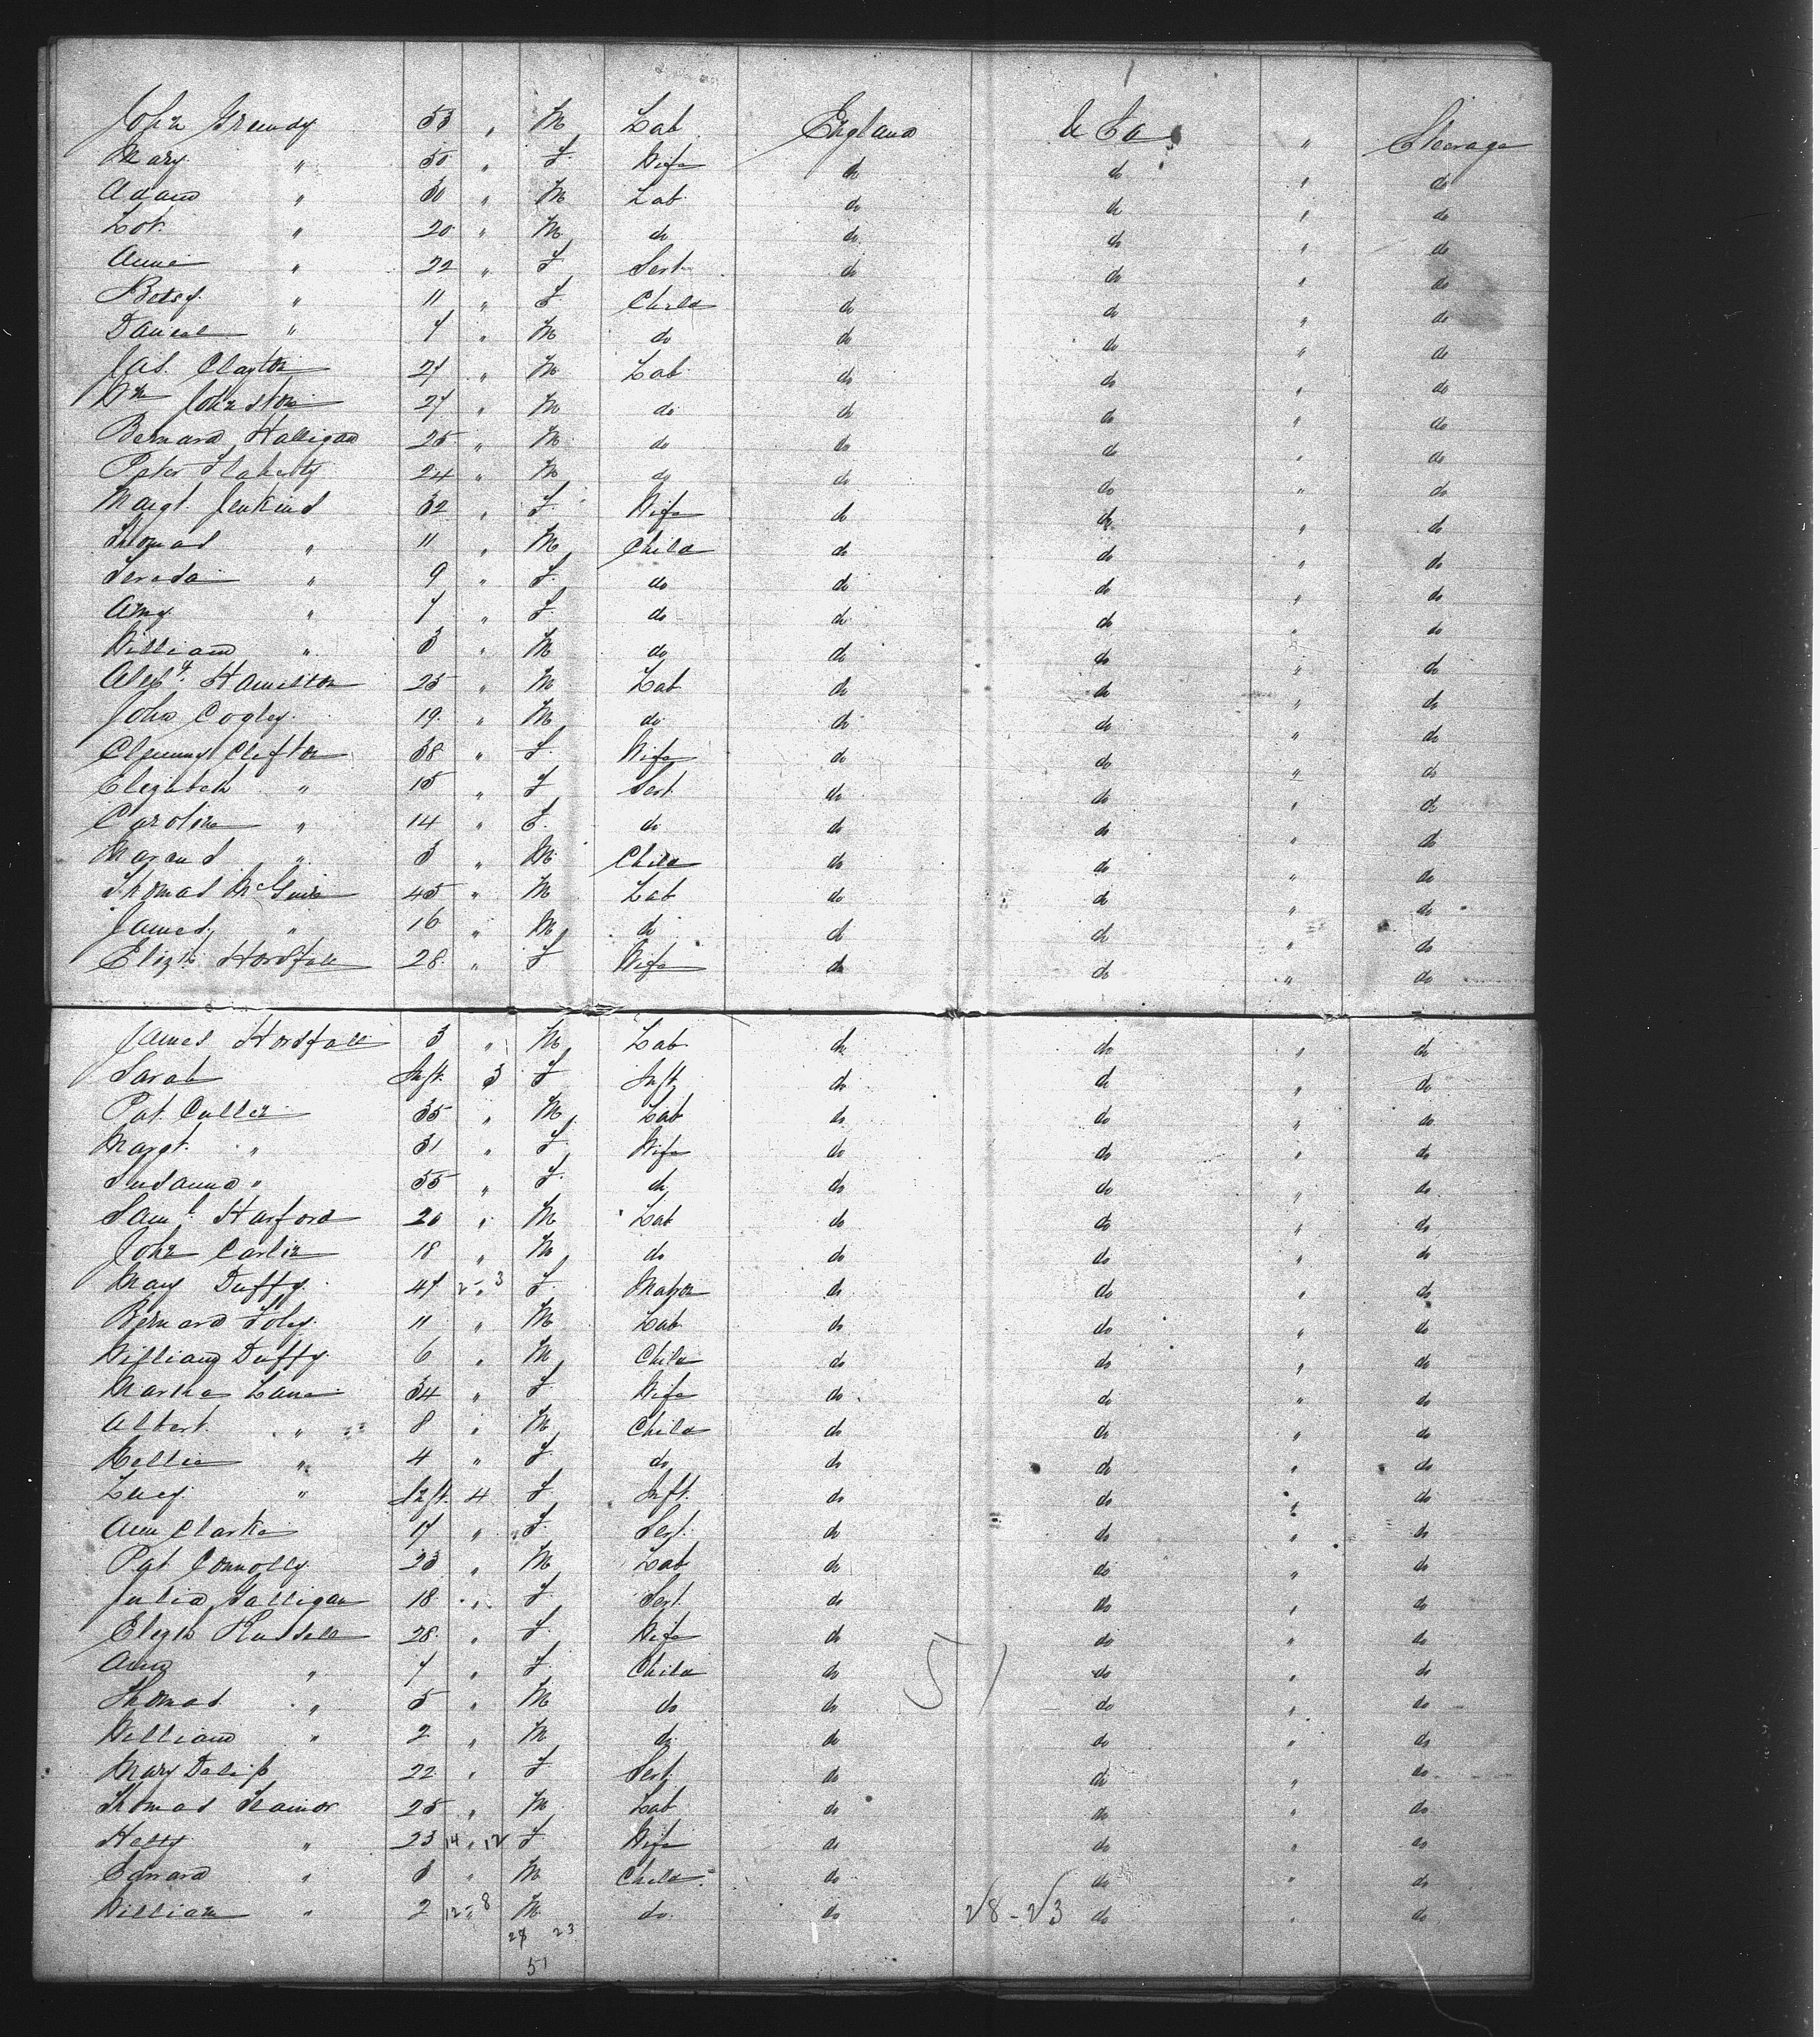 John Grundy 53 " M Lab England U Sa " Steerage
Mary " 50 " F Wife do do " do
Adam " 30 " M Lab do do " do
Lot " 20 " M do do do " do
Anne " 22 " F Servt do do " do
Betsy " 11 " F Child do do " do
Daniel " 7 " M do do do " do
Jas. Clayton 27 " M Lab do do " do
Wm Johnston 27 " M do do do " do
Bernard Halligan 25 " M do do do " do
Peter Flaherty 24 " M do do do " do
Margt. Jenkins 32 " F Wife do do " do
Thomas " 11 " M Child do do " do
Teresa " 9 " F do do do " do
Amy " 7 " F do do do " do
William " 3 " M do do do " do
Hamilton 25 " M Lab do do " do
John Cogley 19 " M do do do " do
Clifton 38 " F Wife do do " do
Elizabeth " 15 " F Servt do do " do
Caroline " 14 " F do do do " do
" 3 " M Child do do " do
Thomas McGuire 45 " M Lab do do " do
James " 16 " M do do do " do
Elizth Horsfall 28 " F Wife do do " do
James Horsfall 3 " M Lab do do " do
Sarah Inft. 3 F Inft do do " do
Pat Cullen 35 " M Lab do do " do
Margt. " 31 " F Wife do do " do
Susanna " 55 " F do do do " do
Saml. Harford 20 " M Lab do do " do
John Carlin 18 " M do do do " do
Mary Duffy 47 2 " 3 F Matron do do " do
Bernard Foley 11 " M Lab do do " do
William Duffy 6 " M Child do do " do
Martha Lane 34 " F Wife do do " do
Albert " 8 " M Child do do " do
Nellie " 4 " F do do do " do
Lucy " Inft. 4 F Inft. do do " do
Ann Clarke 17 " F Servt do do " do
Pat Connolly 23 " M Lab do do " do
Julia Galligan 18 " F Servt do do " do
Elizth Russell 28 " F Wife do do " do
Ann " 7 " F Child do do " do
Thomas " 5 " M do do do " do
William " 2 " M do do do " do
Mary 22 " F Servt do do " do
Thomas Trainor 25 " M Lab do do " do
" 23 14 " 12 F Wife do do " do
Edward " 3 " M Child do do " do
William " 2 12 - 8 M do do 28 - 23 do " do
28 23
51
51